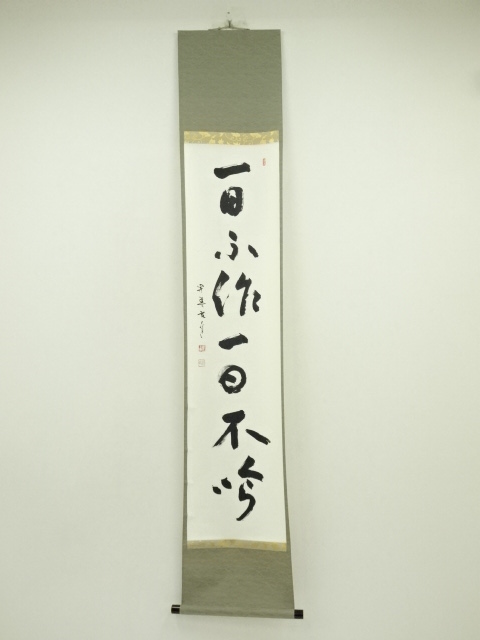 一日不作一日不喰